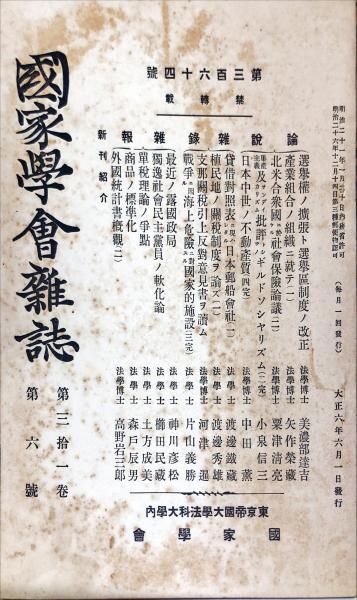 國家學會雜誌
第三拾一卷
第六號
第三百六十四號
禁轉載
大正六年六月一日發行
(每月一回發行)
論說
選擧權ノ擴張ト選擧區制度ノ改正 法學博士 美濃部達吉
產業組合ノ組織ニ就テ(一) 法學博士 矢作榮藏
北米合衆國ニ於ケル社會保險論議(二) 法學博士 粟津清亮
批評トシテノギルドソシヤリズム(二、完) 小泉信三
日本中世ノ不動產質(四完) 法學博士 中田薰
雜錄
貸借對照表ニ現ハレタル日本郵船會社(一) 法學士 渡邊鐵藏
植民地ノ關稅制度ヲ論ズ(一) 法學士 渡邊秀雄
支那關稅引上反對意見書ヲ讀ム 法學博士 河津暹
戰爭ニ因ル海上危險ニ對スル國家的施設(三完) 法學士 片山義勝
雜報
最近ノ露國政局 法學士 神川彥松
獨逸社會民主黨員ノ軟化論 法學士 櫛田民藏
單稅理論ノ爭點 法學士 土方成美
商品ノ標準化 法學士 森戶辰男
新刊紹介
外國統計書概觀(二) 法學博士 高野岩三郎
東京帝國大學法科大學內
國家學會